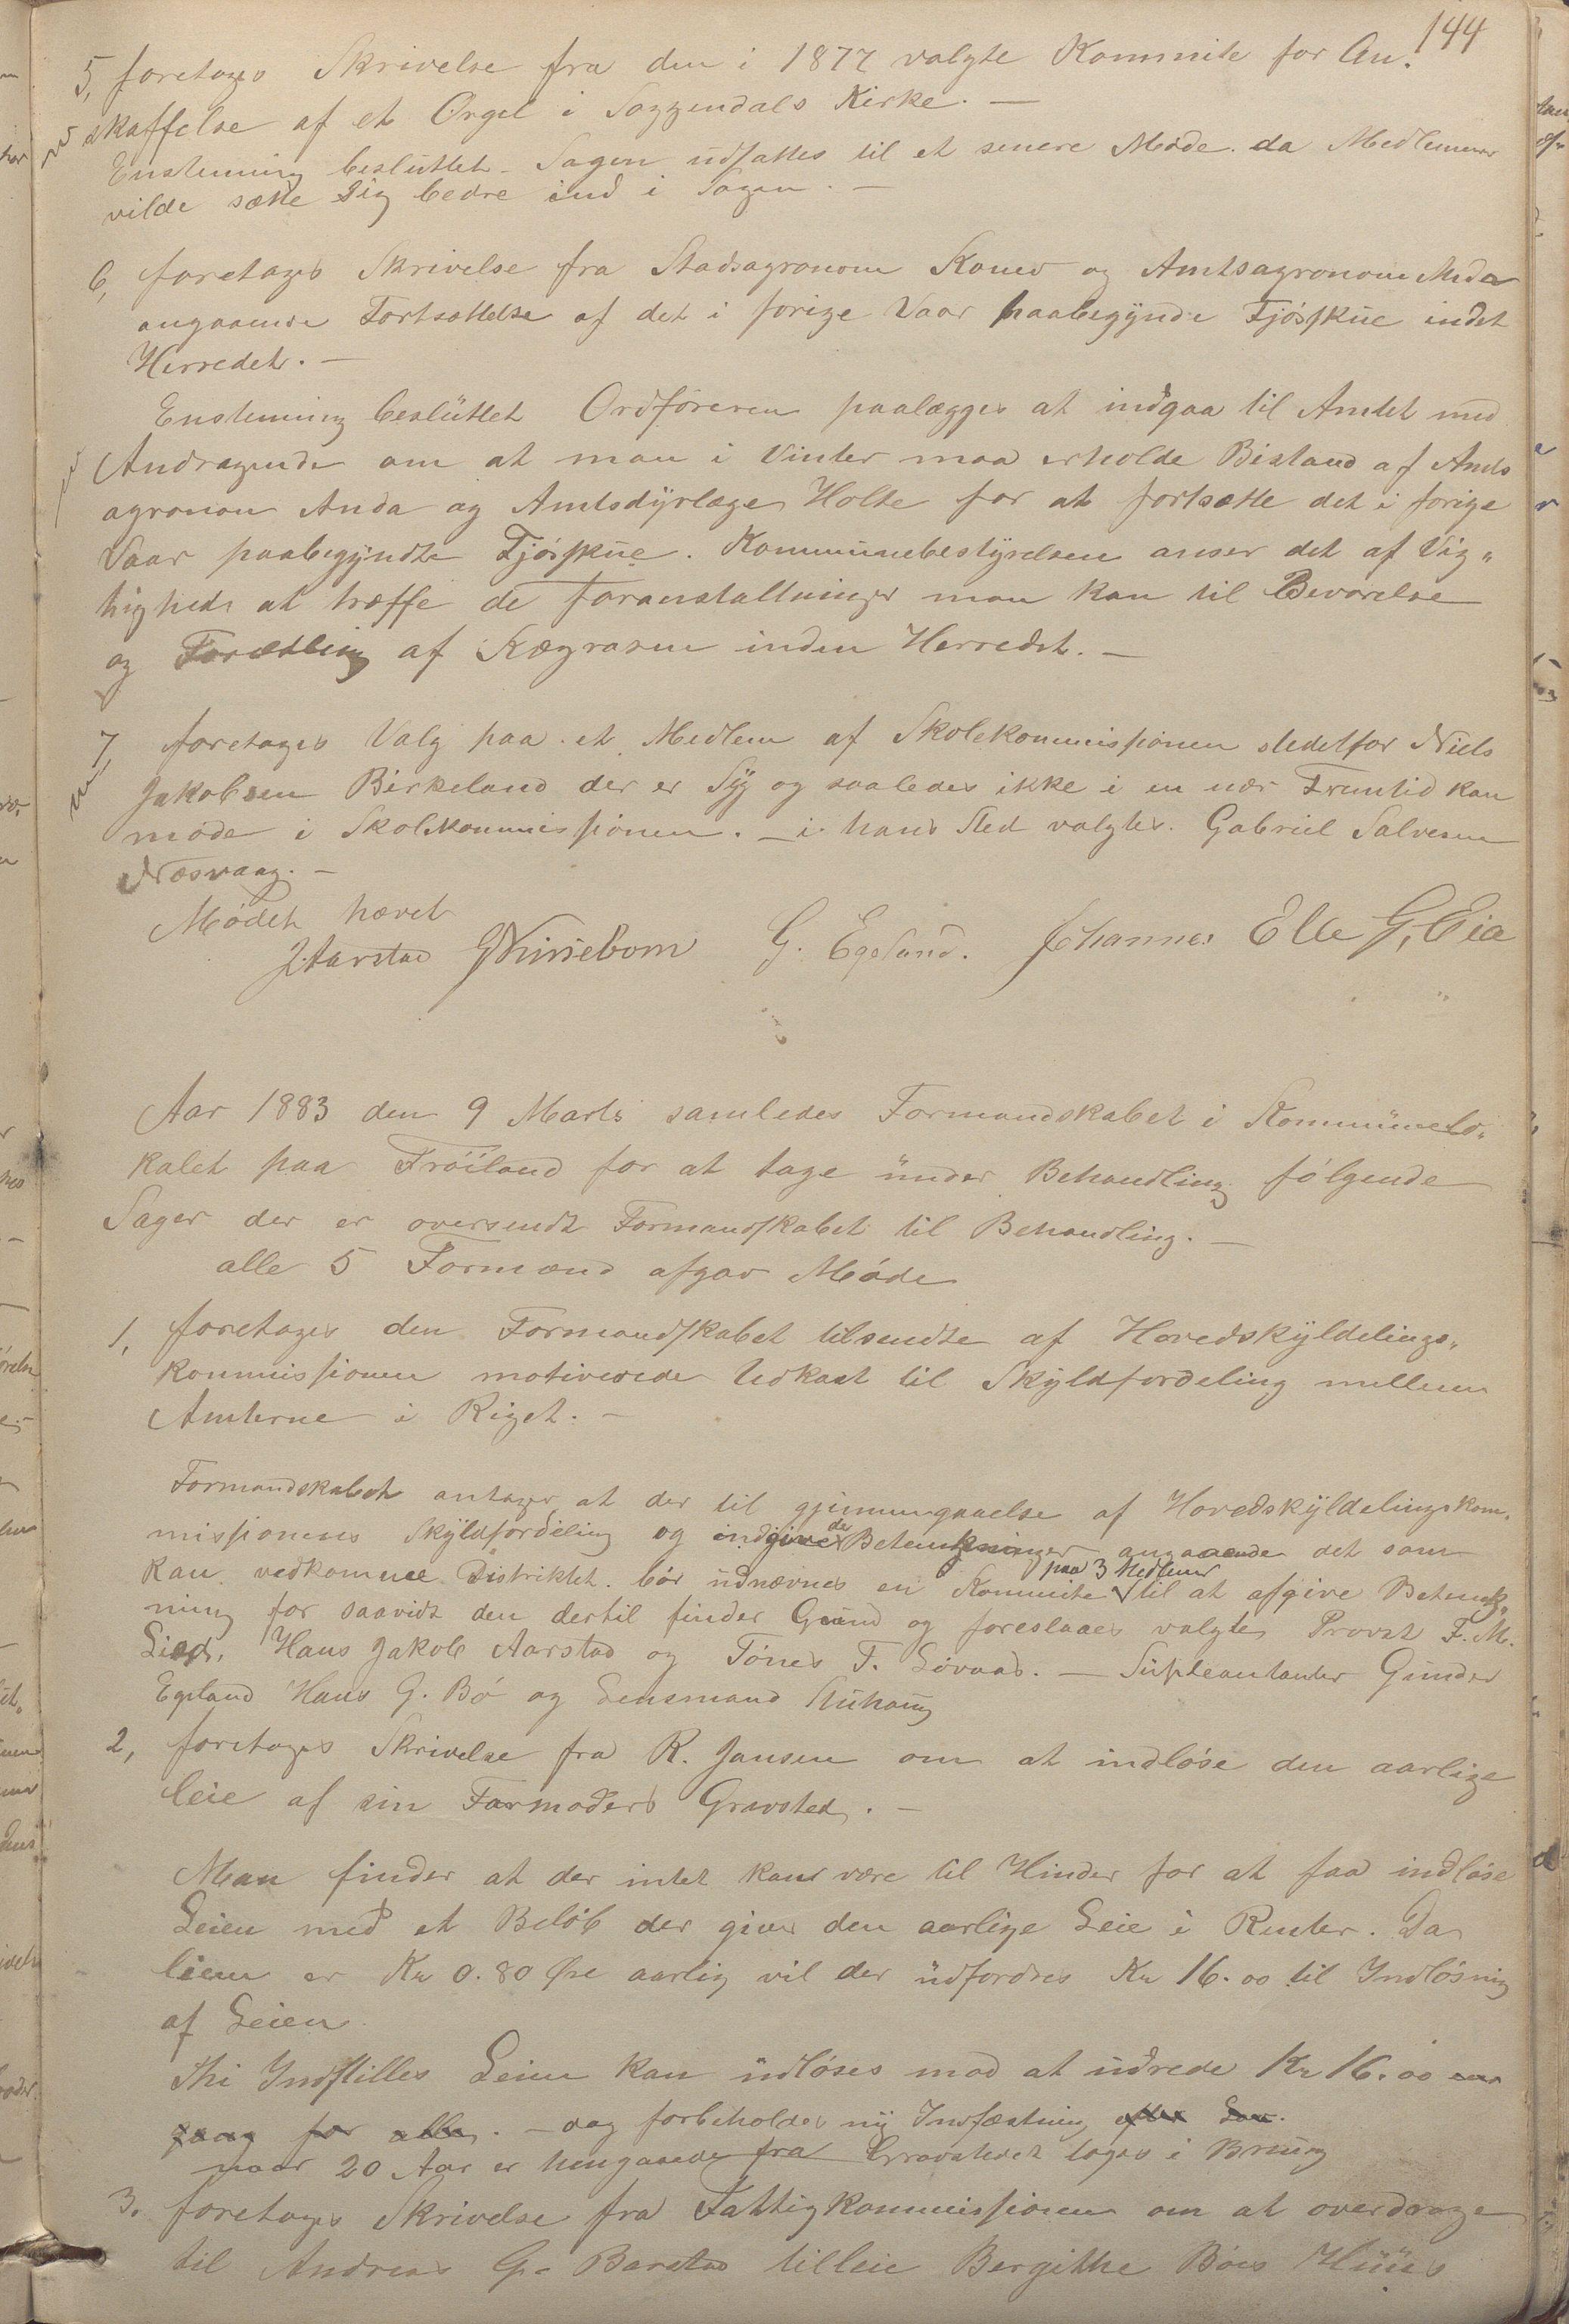 144
5, foretages Skrivelse fra den i 1877 valgte Kommite for An-
skaffelse af et Orgel i Soggendals Kirke. —
Enstemmig besluttet. Sagen udsattes til et senere Møde. da Medlemmer
vilde sætte sig bedre ind i Sagen. —
6, foretages Skrivelse fra Stadsagronom og Amtsagronom Anda
angaaende Fortsættelse af det i forige Vaar paabegynde Fjósskue indet
Herredet. —
Enstemmig besluttet Ordføreren paalægges at indgaa til Amtet med
Andragende om at man i Vinter maa erholde Bistand af Amts
agronom Anda og Amtsdyrlæge Holte for at fortsætte det i forige
Vaar paabegyndte Fjósskue. Kommunebestyrelsen anser det af Vig„
tighed at træffe de Foranstaltninger man kan til Bevarelse
og Forædling af Kograsen inden Herredet. —
7, foretages Valg paa et Medlem af Skolekommissionen stedetfor Niels
Jakobsen Birkeland der er Syg og saaledes ikke i en nær Fremtid kan
møde i Skolekommissionen. — i hans Sted valgtes. Gabriel Salvesen
Næsvaag. —
Mødet hævet
J. Aarstad G. Egeland. Johannes Elle G, Eia
Aar 1883 den 9 Marts samledes Formandskabet i Kommunelo„
kalet paa Frøiland for at tage under Behandling følgende
Sager der er oversendt Formandskabet til Behandling. —
alle 5 Formænd afgav Møde
1, foretages den Formandskabet tilsendte af Hovedskyldelings„
kommissionen motiverede Udkast til Skyldfordeling mellem
Amterne i Riget. —
Formandskabet antager at der til gjennemgaaelse af Hovedskyldelingskom„
missionens Skyldfordeling og indgivede Betenkninger angaaende det som
kan vedkomme Distriktet. bør udnævnes en Kommite paa 3 Medlemer til at afgive Betenk„
ning for saavidt den dertil finder Grund og foreslaaes valgte Provst F. M.
Lied, Hans Jakob Aarstad og Tønes T. Løvaas. — Supleantanter Gunder
Egeland Hans G. Bø og Lensmand Stuhaug
2, foretages Skrivelse fra R. Jansen om at indløse den aarlige
leie af sin Farmoders Gravsted. —
Man finder at der intet kan være til Hinder for at faa indløse
Leien med et Beløb der giver den aarlige Leie i Renter. Da
leien er Kr 0.80 Øre aarlig vil der udfordres Kr 16.00 til Indløsning
af Leien
Thi Indstilles Leien kan indløses mod at udrede Kr 16.00 en
gang for alle. — dog forbeholdes ny Indfæstning efter Lov.
naar 20 Aar er hengaaede fra Gravstedet toges i Brug
3. foretages Skrivelse fra Fattigkommissionen om at overdrage
til Andreas G. Barstad tilleie Bergitthe Bøes Huus